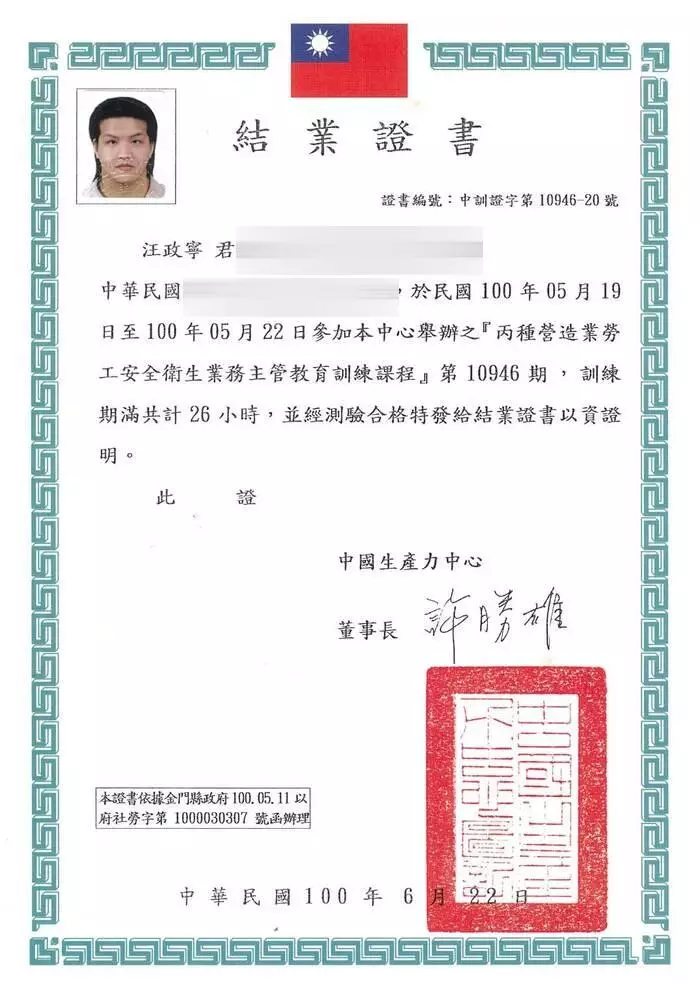 結業證書
證書編號：中訓證字第 10946-20 號
汪政寧 君
中華民國 ，於民國 100 年 05 月 19
日至 100 年 05 月 22 日參加本中心舉辦之『丙種營造業勞
工安全衛生業務主管教育訓練課程』第 10946 期，訓練
期滿共計 26 小時，並經測驗合格特發給結業證書以資證
明。
此 證
中國生產力中心
董事長 許勝雄
本證書依據金門縣政府 100.05.11 以
府社勞字第 1000030307 號函辦理
中華民國 100 年 6 月 22 日